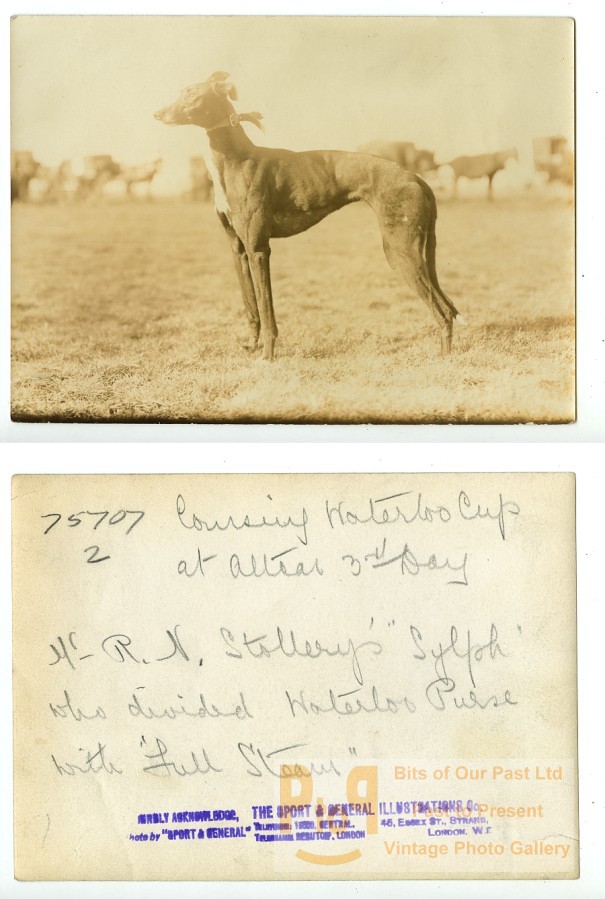 75707
2
Coursing Waterloo Cup
at Altcar 3rd Day
Mr R. N. Stollery's "Sylph"
who divided Waterloo Purse
with "Full Steam"
Bits of Our Past Ltd
Past to Present
Vintage Photo Gallery
KINDLY ACKNOWLEDGE,
Photo by "SPORT & GENERAL"
THE SPORT & GENERAL ILLUSTRATIONS Co.
45, ESSEX ST., STRAND,
LONDON. W.C.